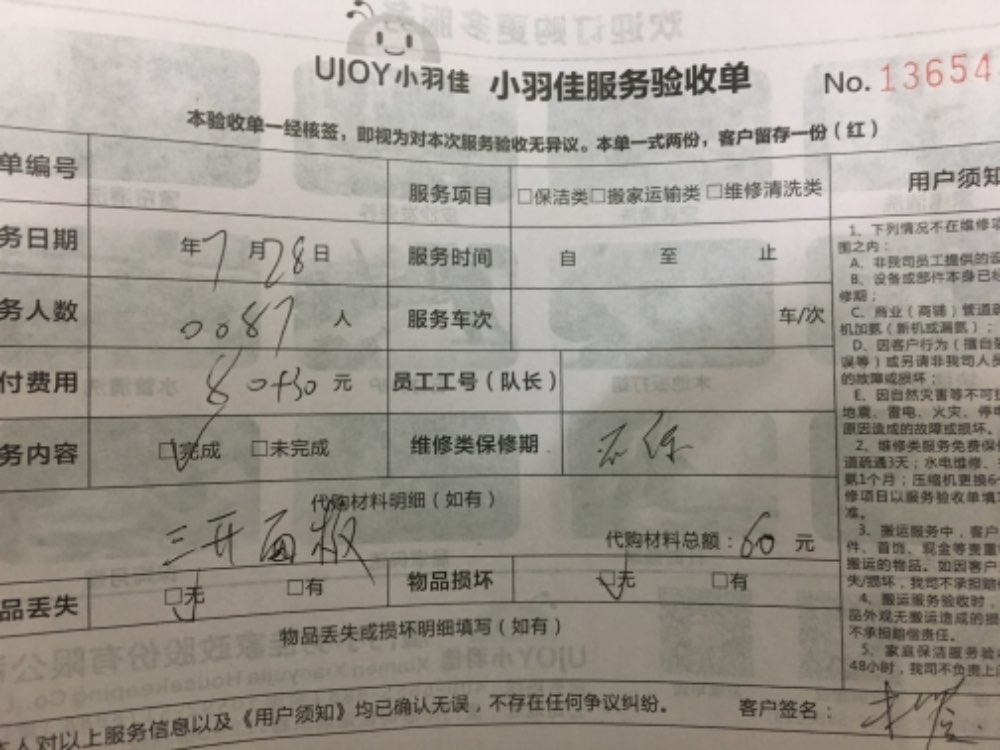 UJOY小羽佳 小羽佳服务验收单 No. 13654
本验收单一经核签，即视为对本次服务验收无异议。本单一式两份，客户留存一份（红）
单编号 服务项目 □保洁类□搬家运输类 □维修清洗类
务日期 年7月28日 服务时间 自 至 止
务人数 0087 人 服务车次 车/次
付费用 80+30 元 员工工号（队长）
务内容 □完成 □未完成 维修类保修期 不保
代购材料明细（如有）
三开面板 代购材料总额：60 元
品丢失 □无 □有 物品损坏 □无 □有
物品丢失或损坏明细填写（如有）
本人对以上服务信息以及《用户须知》均已确认无误，不存在任何争议纠纷。 客户签名：
用户须知
1、下列情况不在维修
围之内：
A、非我司员工提供的
B、设备或部件本身已
修期；
C、商业（商铺）管道
机加氨（新机或漏氨）；
D、因客户行为（擅自
误等）或另请非我司人员
的故障或损坏；
E、因自然灾害等不可
地震、雷电、火灾、停
原因造成的故障或损坏。
2、维修类服务免费保
道疏通3天；水电维修、
氨1个月；压缩机更换6
修项目以服务验收单填
准。
3、搬运服务中，客户
件、首饰、现金等贵重
搬运的物品。如因客户
失/损坏，我司不承担赔
4、搬运服务验收时，
品外观无搬运造成的损
不承担赔偿责任。
5、家庭保洁服务验
48小时，我司不负责上